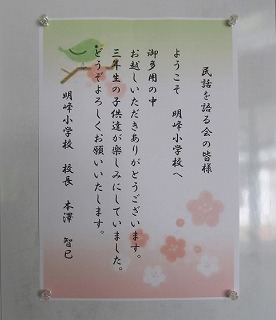 民話を語る会の皆様
ようこそ 明峰小学校へ
御多用の中
お越しいただきありがとうございます。
三年生の子供達が楽しみにしていました。
どうぞよろしくお願いいたします。
明峰小学校 校長 本澤 智巳